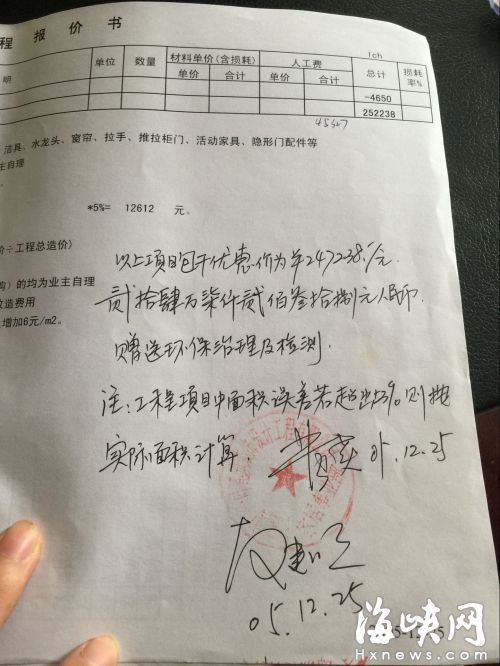 程 报 价 书
lch
明 单位 数量 材料单价(含损耗) 人工费 总计 损耗率%
单价 合计 单价 合计
-4650
252238
洁具、水龙头、窗帘、拉手、推拉柜门、活动家具、隐形门配件等
主自理
*5%= 12612 元。
价÷工程总造价)
以上项目包干优惠价为¥247238./元.
购) 的均为业主自理
贰拾肆万柒仟贰佰叁拾捌元人民币.
改造费用
增加6元/m2。
赠送环保治理及检测.
注:工程项目中面积误差若超出3%则按
实际面积计算.
05.12.25
05.12.25
海峡网
Hxnews.com